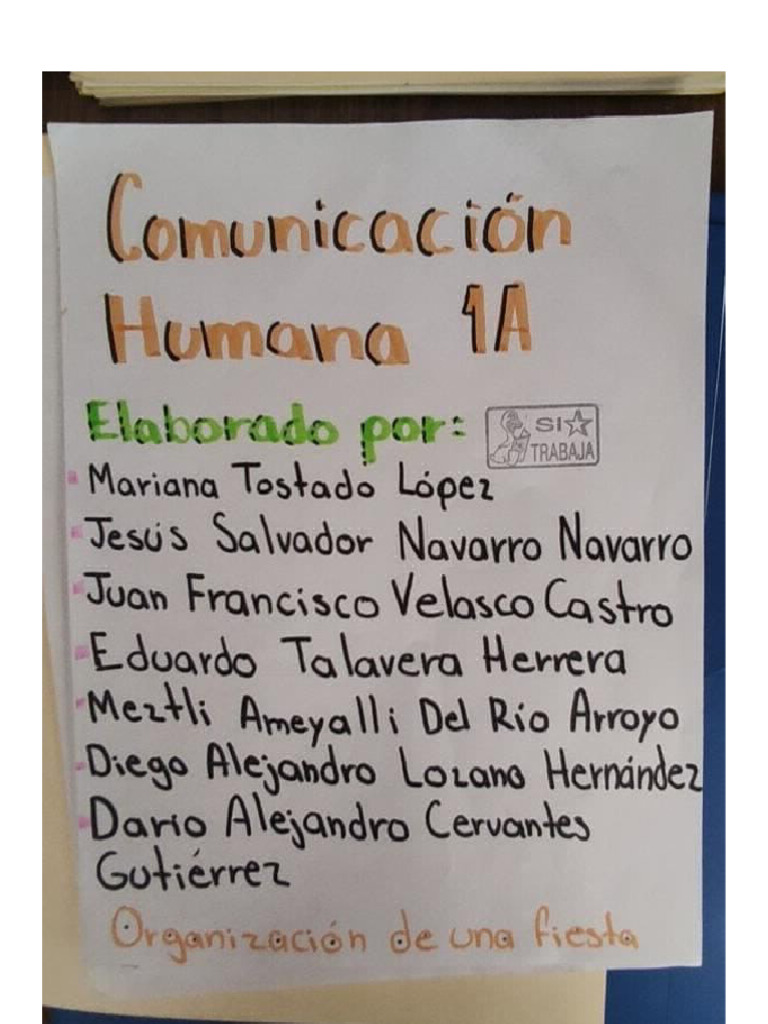 Comunicación
Humana 1A
Elaborado por:
SI
TRABAJA
Mariana Tostado López
Jesús Salvador Navarro Navarro
Juan Francisco Velasco Castro
Eduardo Talavera Herrera
Meztli Ameyalli Del Río Arroyo
Diego Alejandro Lozano Hernández
Darío Alejandro Cervantes
Gutiérrez
Organización de una fiesta